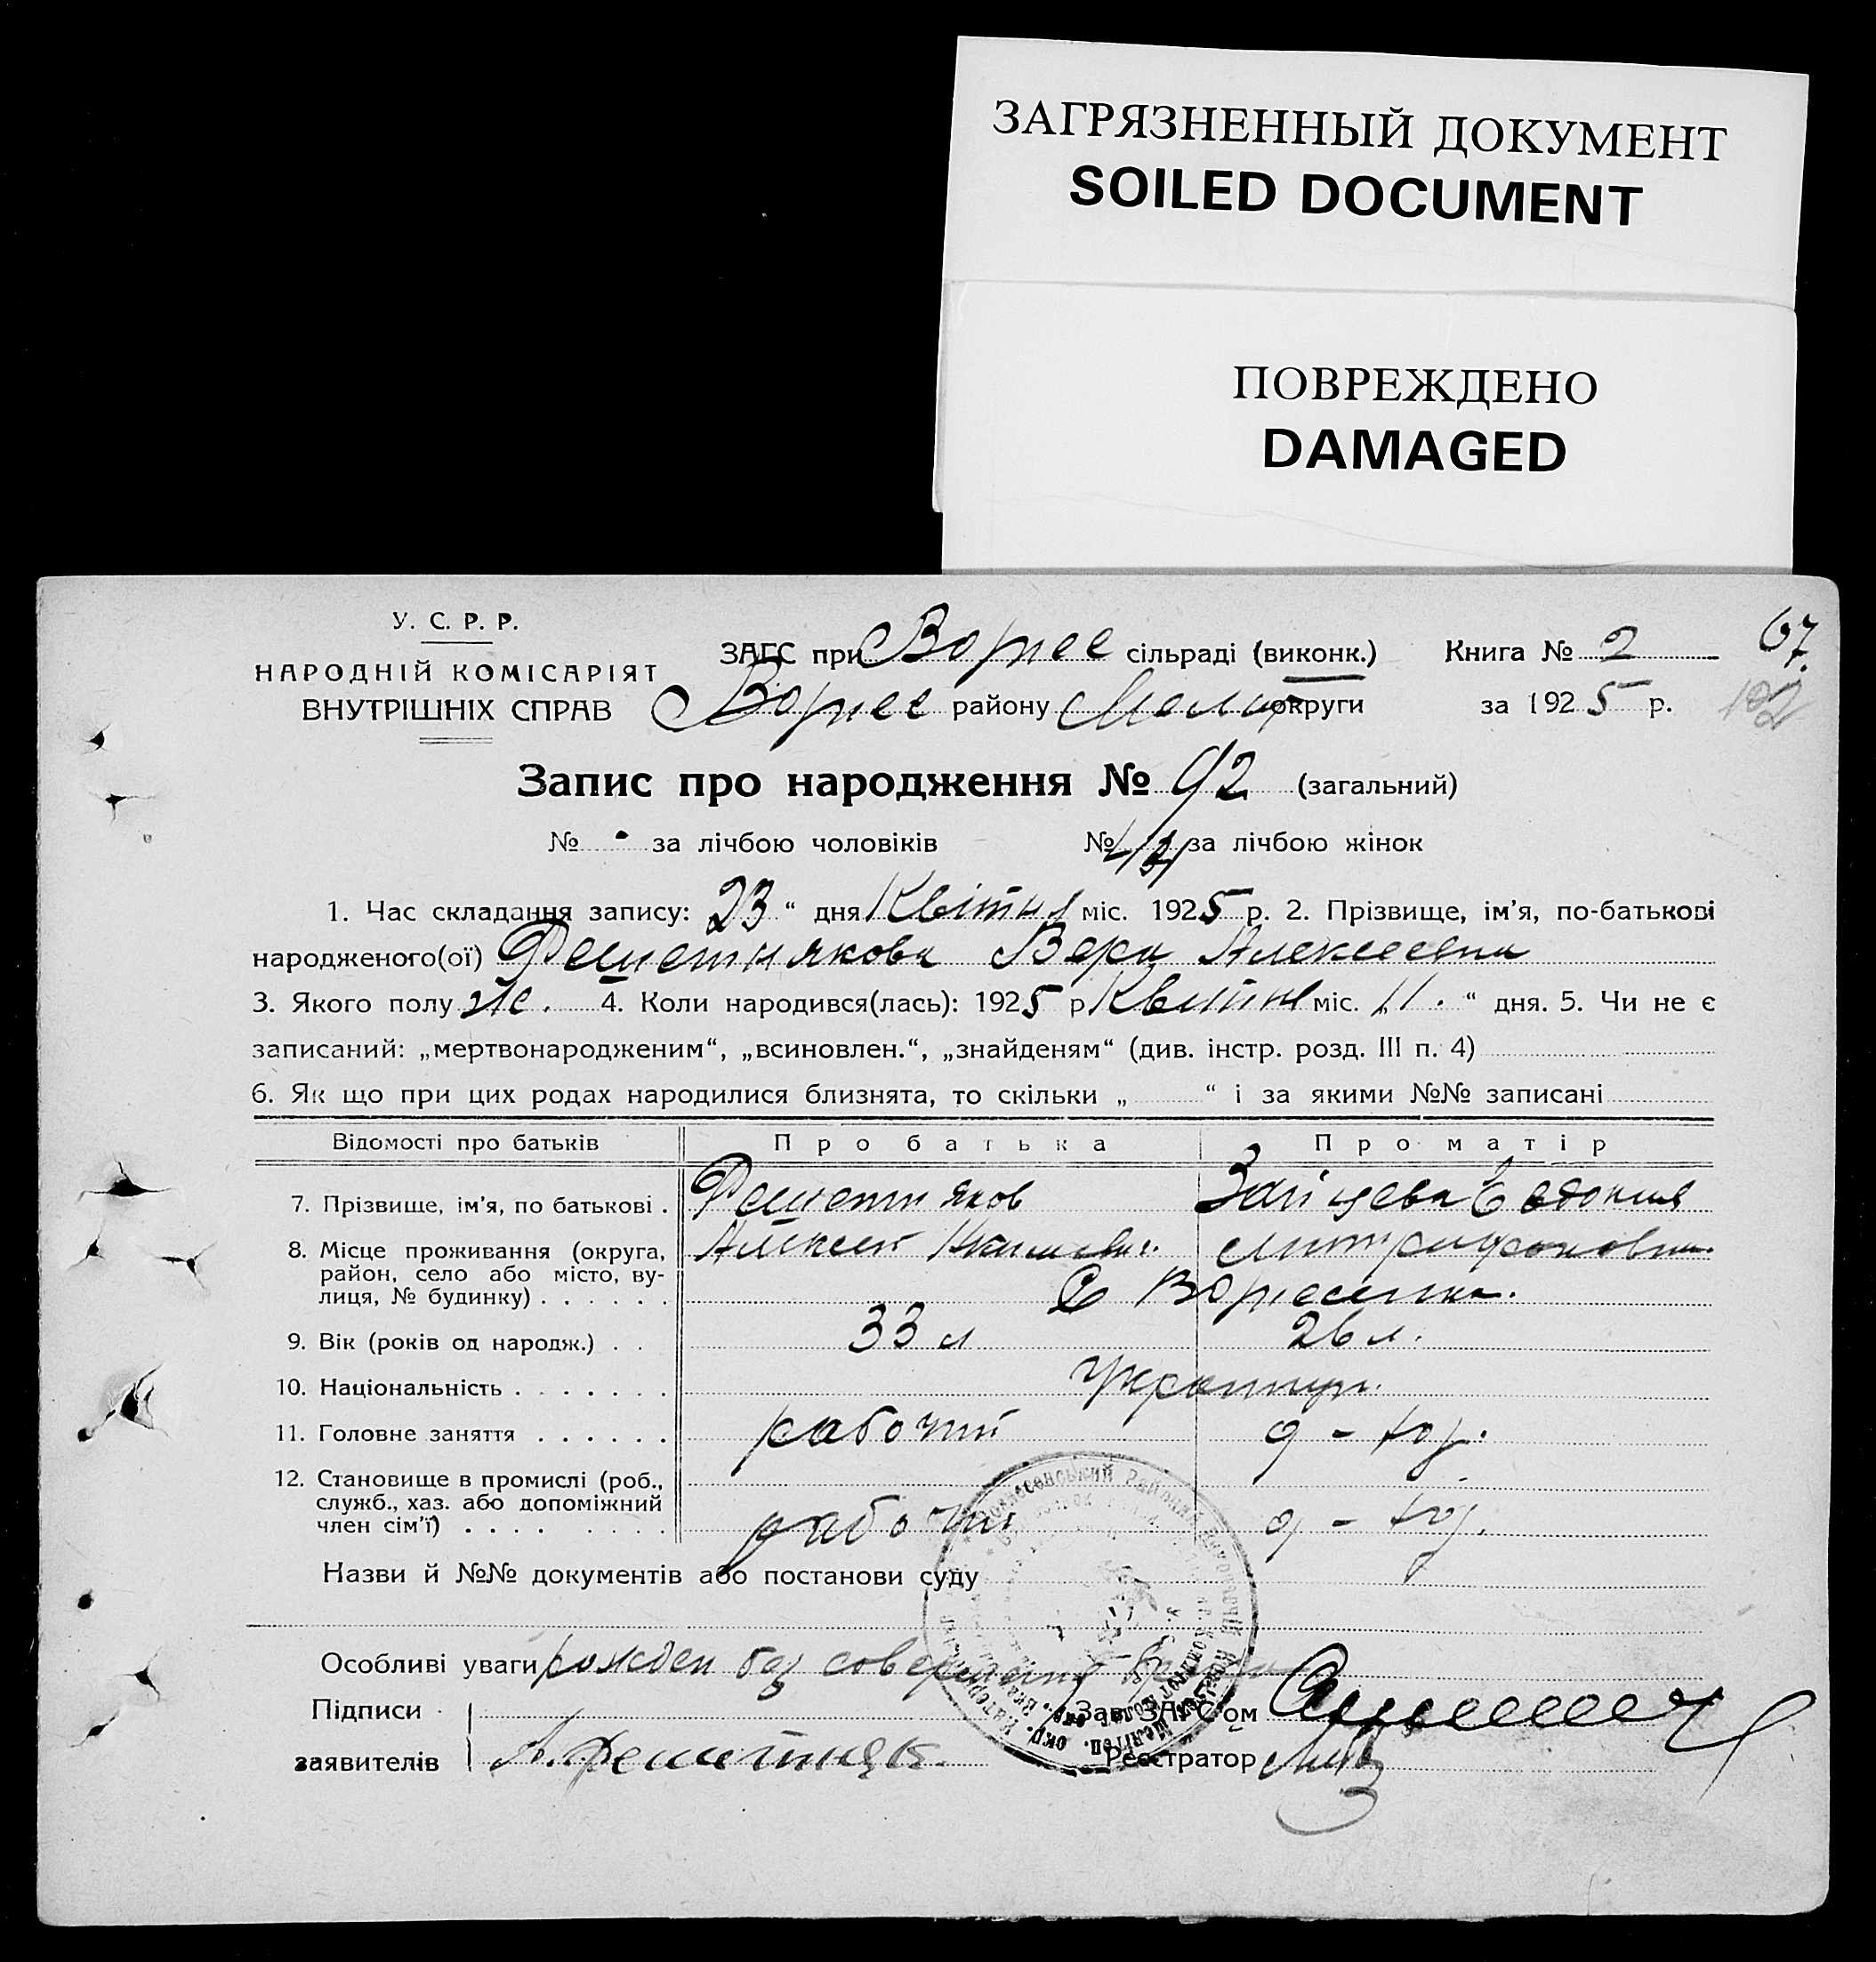 ЗАГРЯЗНЕННЫЙ ДОКУМЕНТ
SOILED DOCUMENT
ПОВРЕЖДЕНО
DAMAGED
У. С. Р. Р.
НАРОДНІЙ КОМІСАРІЯТ
ВНУТРІШНІХ СПРАВ
ЗАГС при Вознес сільраді (виконк.) Книга № 2 67.
Вознес району Мелит округи за 1925 р. 102
Запис про народження № 92 (загальний)
№ за лічбою чоловіків № за лічбою жінок
1. Час складання запису: 23 " дня Квітня міс. 1925 р. 2. Прізвище, ім'я, по-батькові
народженого(ої) Решетнякова Вера Алексеевна
3. Якого полу Ж. 4. Коли народився(лась): 1925 р Квітня міс. „11." дня. 5. Чи не є
записаний: „мертвонародженим", „всиновлен.", „знайденям" (див. інстр. розд. III п. 4)
6. Як що при цих родах народилися близнята, то скільки „ " і за якими №№ записані
Відомості про батьків Про батька Про матір
7. Прізвище, ім'я, по батькові . Решетняков Зайцева Евдокия
Алексей Митрофановна.
8. Місце проживання (округа, район, село або місто, вулиця, № будинку) . . . . . . С Вознесенка.
9. Вік (років од народж.) . . 33 л 26 л.
10. Національність . . . . . . . Украинцы.
11. Головне заняття . . . . . . рабочий д-хоз.
12. Становище в промислі (роб., служб., хаз. або допоміжний член сім'ї) . . . . . . . . . рабочий д-хоз.
Назви й №№ документів або постанови суду
Особливі уваги рожден без совершения брака
Підписи Зав. ЗАГС'ом
заявителів А. Решитняк. Реєстратор